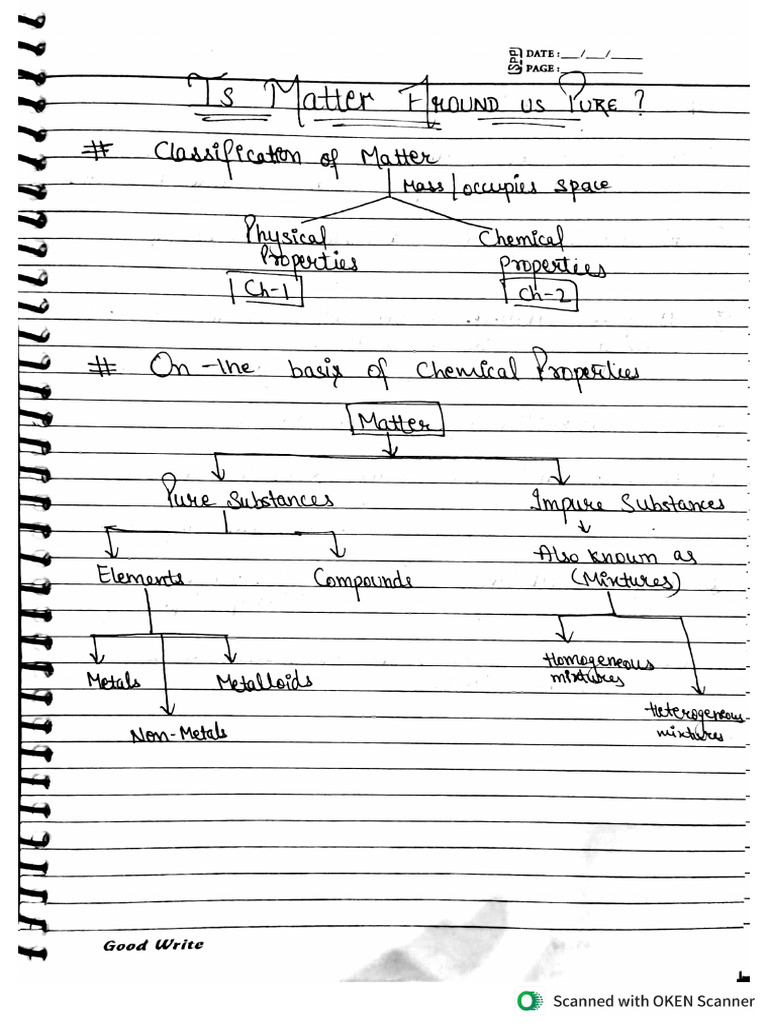 SPP DATE: __/__/____
PAGE: ________
Is Matter Around us Pure?
# Classification of Matter
Mass/occupies space
Physical Chemical
Properties properties
Ch-1 Ch-2
# On the basis of Chemical Properties
Matter
Pure Substances Impure Substances
Also known as
Elements Compounds (Mixtures)
Homogeneous
Metals Metalloids mixtures
Heterogeneous
Non-Metals mixtures
Good Write
Scanned with OKEN Scanner